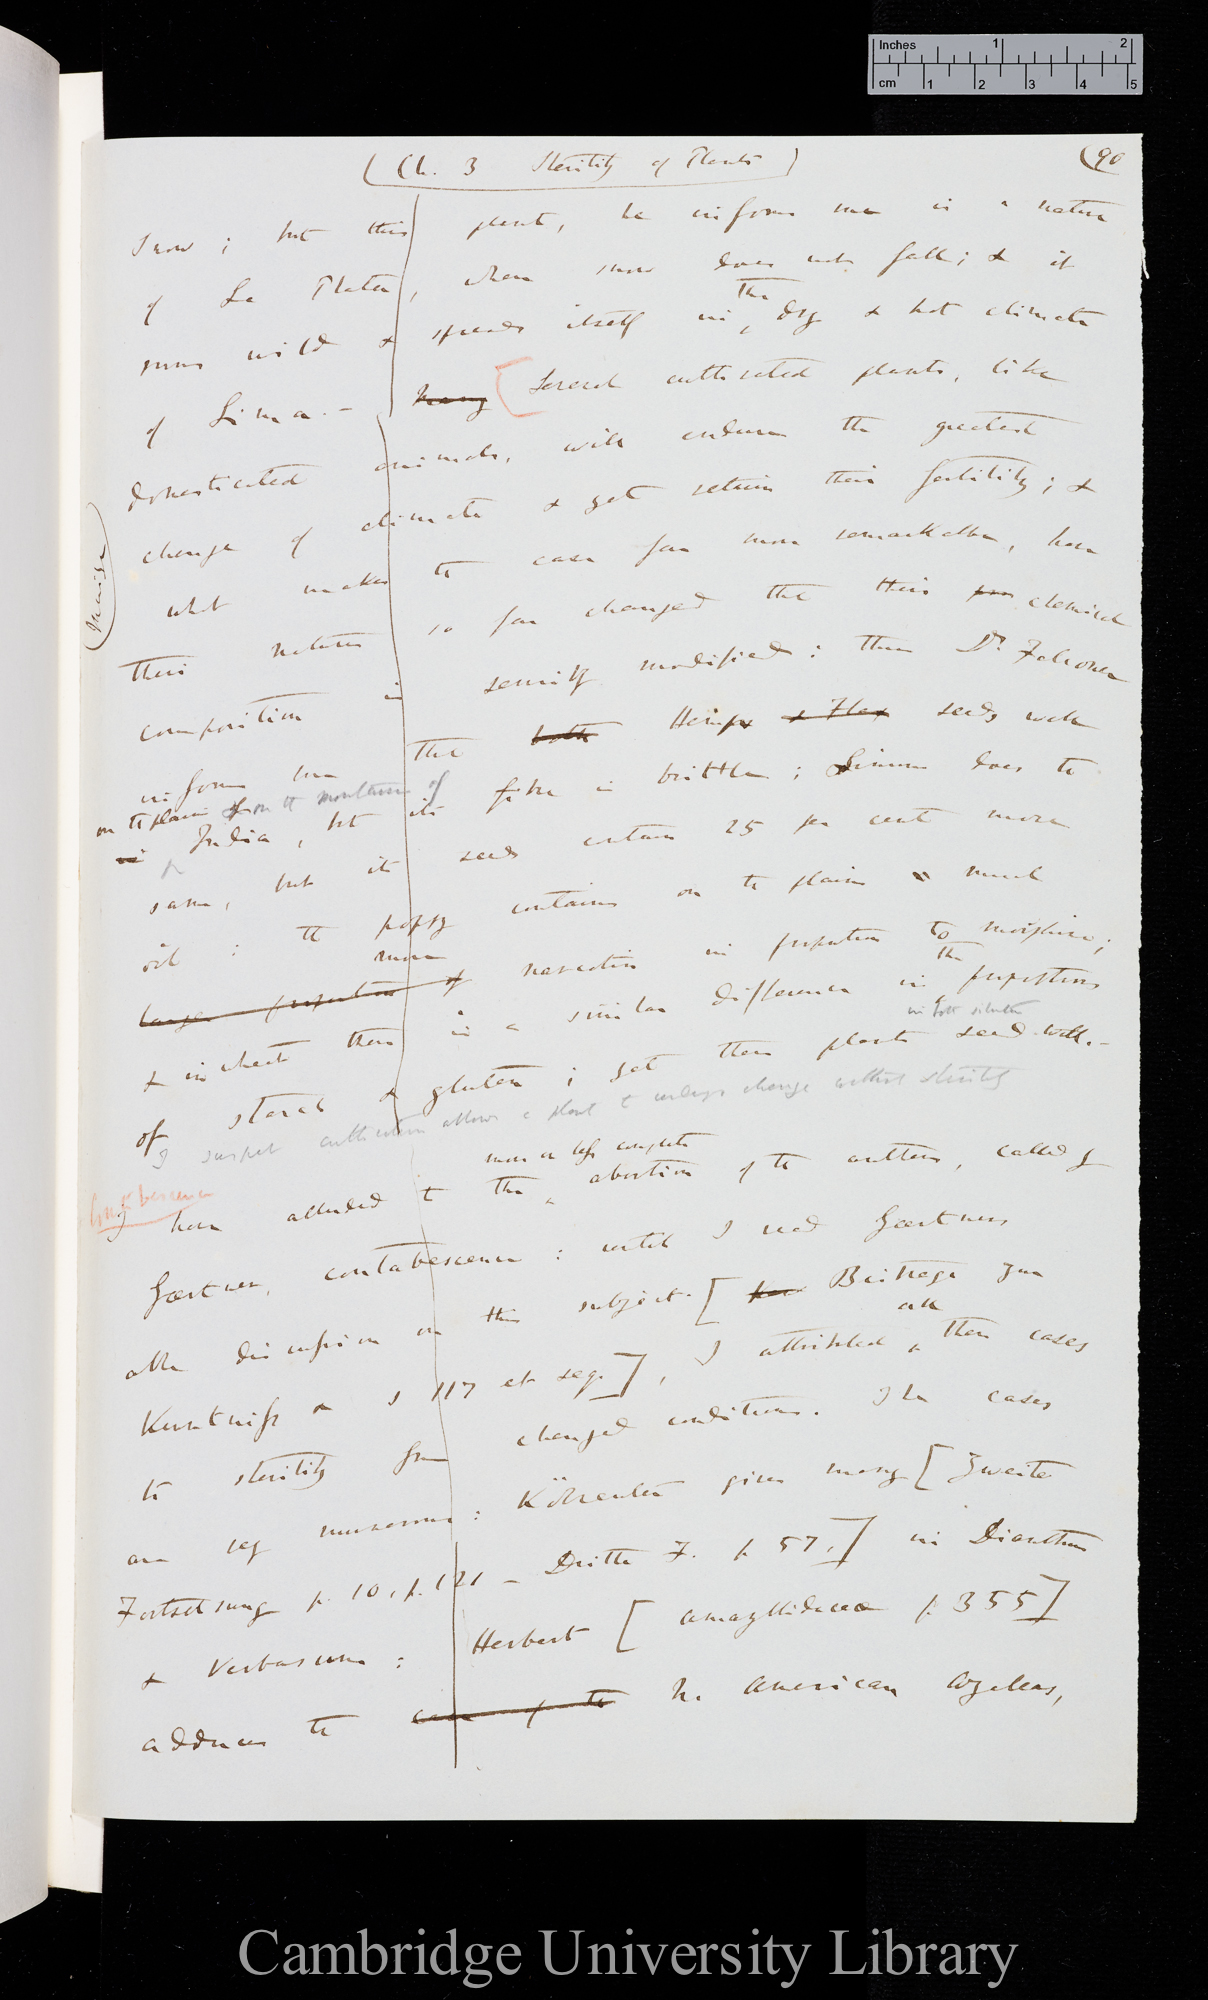 Inches 1 2
cm 1 2 3 4 5
(Ch. 3 Sterility of Plants)
(90
snow; but this plant, he informs me is a native
of La Plata, where snow does not fall; & it
runs wild & spreads itself in the dry & hot climate
of Lima. — Many [Several cultivated plants, like
domesticated animals, will endure the greatest
change of climate & yet retain their fertility; &
what makes the case far more remarkable, have
(Maize)
their natures so far changed that their chemical
composition is sensibly modified: thus Dr. Falconer
informs me that both Hemp & Flax seeds well
on the plains & on the mountains of
in India, but its fibre is brittle; Linum does the
same, but its seeds contain 25 per cent more
oil: the poppy contains on the plains much
more
larger proportion of narcotin in proportion to morphine;
& in wheat there is a similar difference in the proportions
in both situations
of starch & gluten; yet these plants seed well. —
I suspect cultivation allows a plant to undergo change without sterility
Contabescence
more or less complete
I have alluded to the abortion of the anthers, called by
Gærtner, contabescence: until I read Gærtner's
able discussion on this subject [Beitrage zur
Kenntniss s 117 et seq.], I attributed all these cases
to sterility from changed conditions. The cases
are very numerous: Kölreuter gives many [Zweite
Fortsetsung p. 10, p. 121 — Dritte F. p 57,] in Dianthus
& Verbascum: Herbert [Amaryllidaceæ p. 355]
adduces the case of the N. American Azaleas,
Cambridge University Library